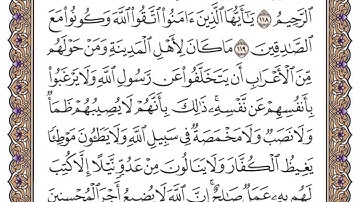 ٱلرَّحِيمُ ١١٨ يَـٰٓأَيُّهَا ٱلَّذِينَ ءَامَنُوا۟ ٱتَّقُوا۟ ٱللَّهَ وَكُونُوا۟ مَعَ
ٱلصَّـٰدِقِينَ ١١٩ مَا كَانَ لِأَهْلِ ٱلْمَدِينَةِ وَمَنْ حَوْلَهُم
مِّنَ ٱلْأَعْرَابِ أَن يَتَخَلَّفُوا۟ عَن رَّسُولِ ٱللَّهِ وَلَا يَرْغَبُوا۟
بِأَنفُسِهِمْ عَن نَّفْسِهِۦ ۚ ذَٰلِكَ بِأَنَّهُمْ لَا يُصِيبُهُمْ ظَمَأٌ
وَلَا نَصَبٌ وَلَا مَخْمَصَةٌ فِى سَبِيلِ ٱللَّهِ وَلَا يَطَـُٔونَ مَوْطِئًا
يَغِيظُ ٱلْكُفَّارَ وَلَا يَنَالُونَ مِنْ عَدُوٍّ نَّيْلًا إِلَّا كُتِبَ
لَهُم بِهِۦ عَمَلٌ صَـٰلِحٌ ۚ إِنَّ ٱللَّهَ لَا يُضِيعُ أَجْرَ ٱلْمُحْسِنِينَ